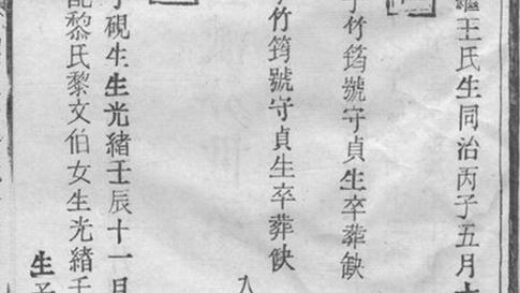 繼王氏生同治丙子五月十
竹筠號守貞生卒葬缺
竹筠號守貞生卒葬缺
硯生生光緒壬辰十一月
配黎氏黎文伯女生光緒壬
生子